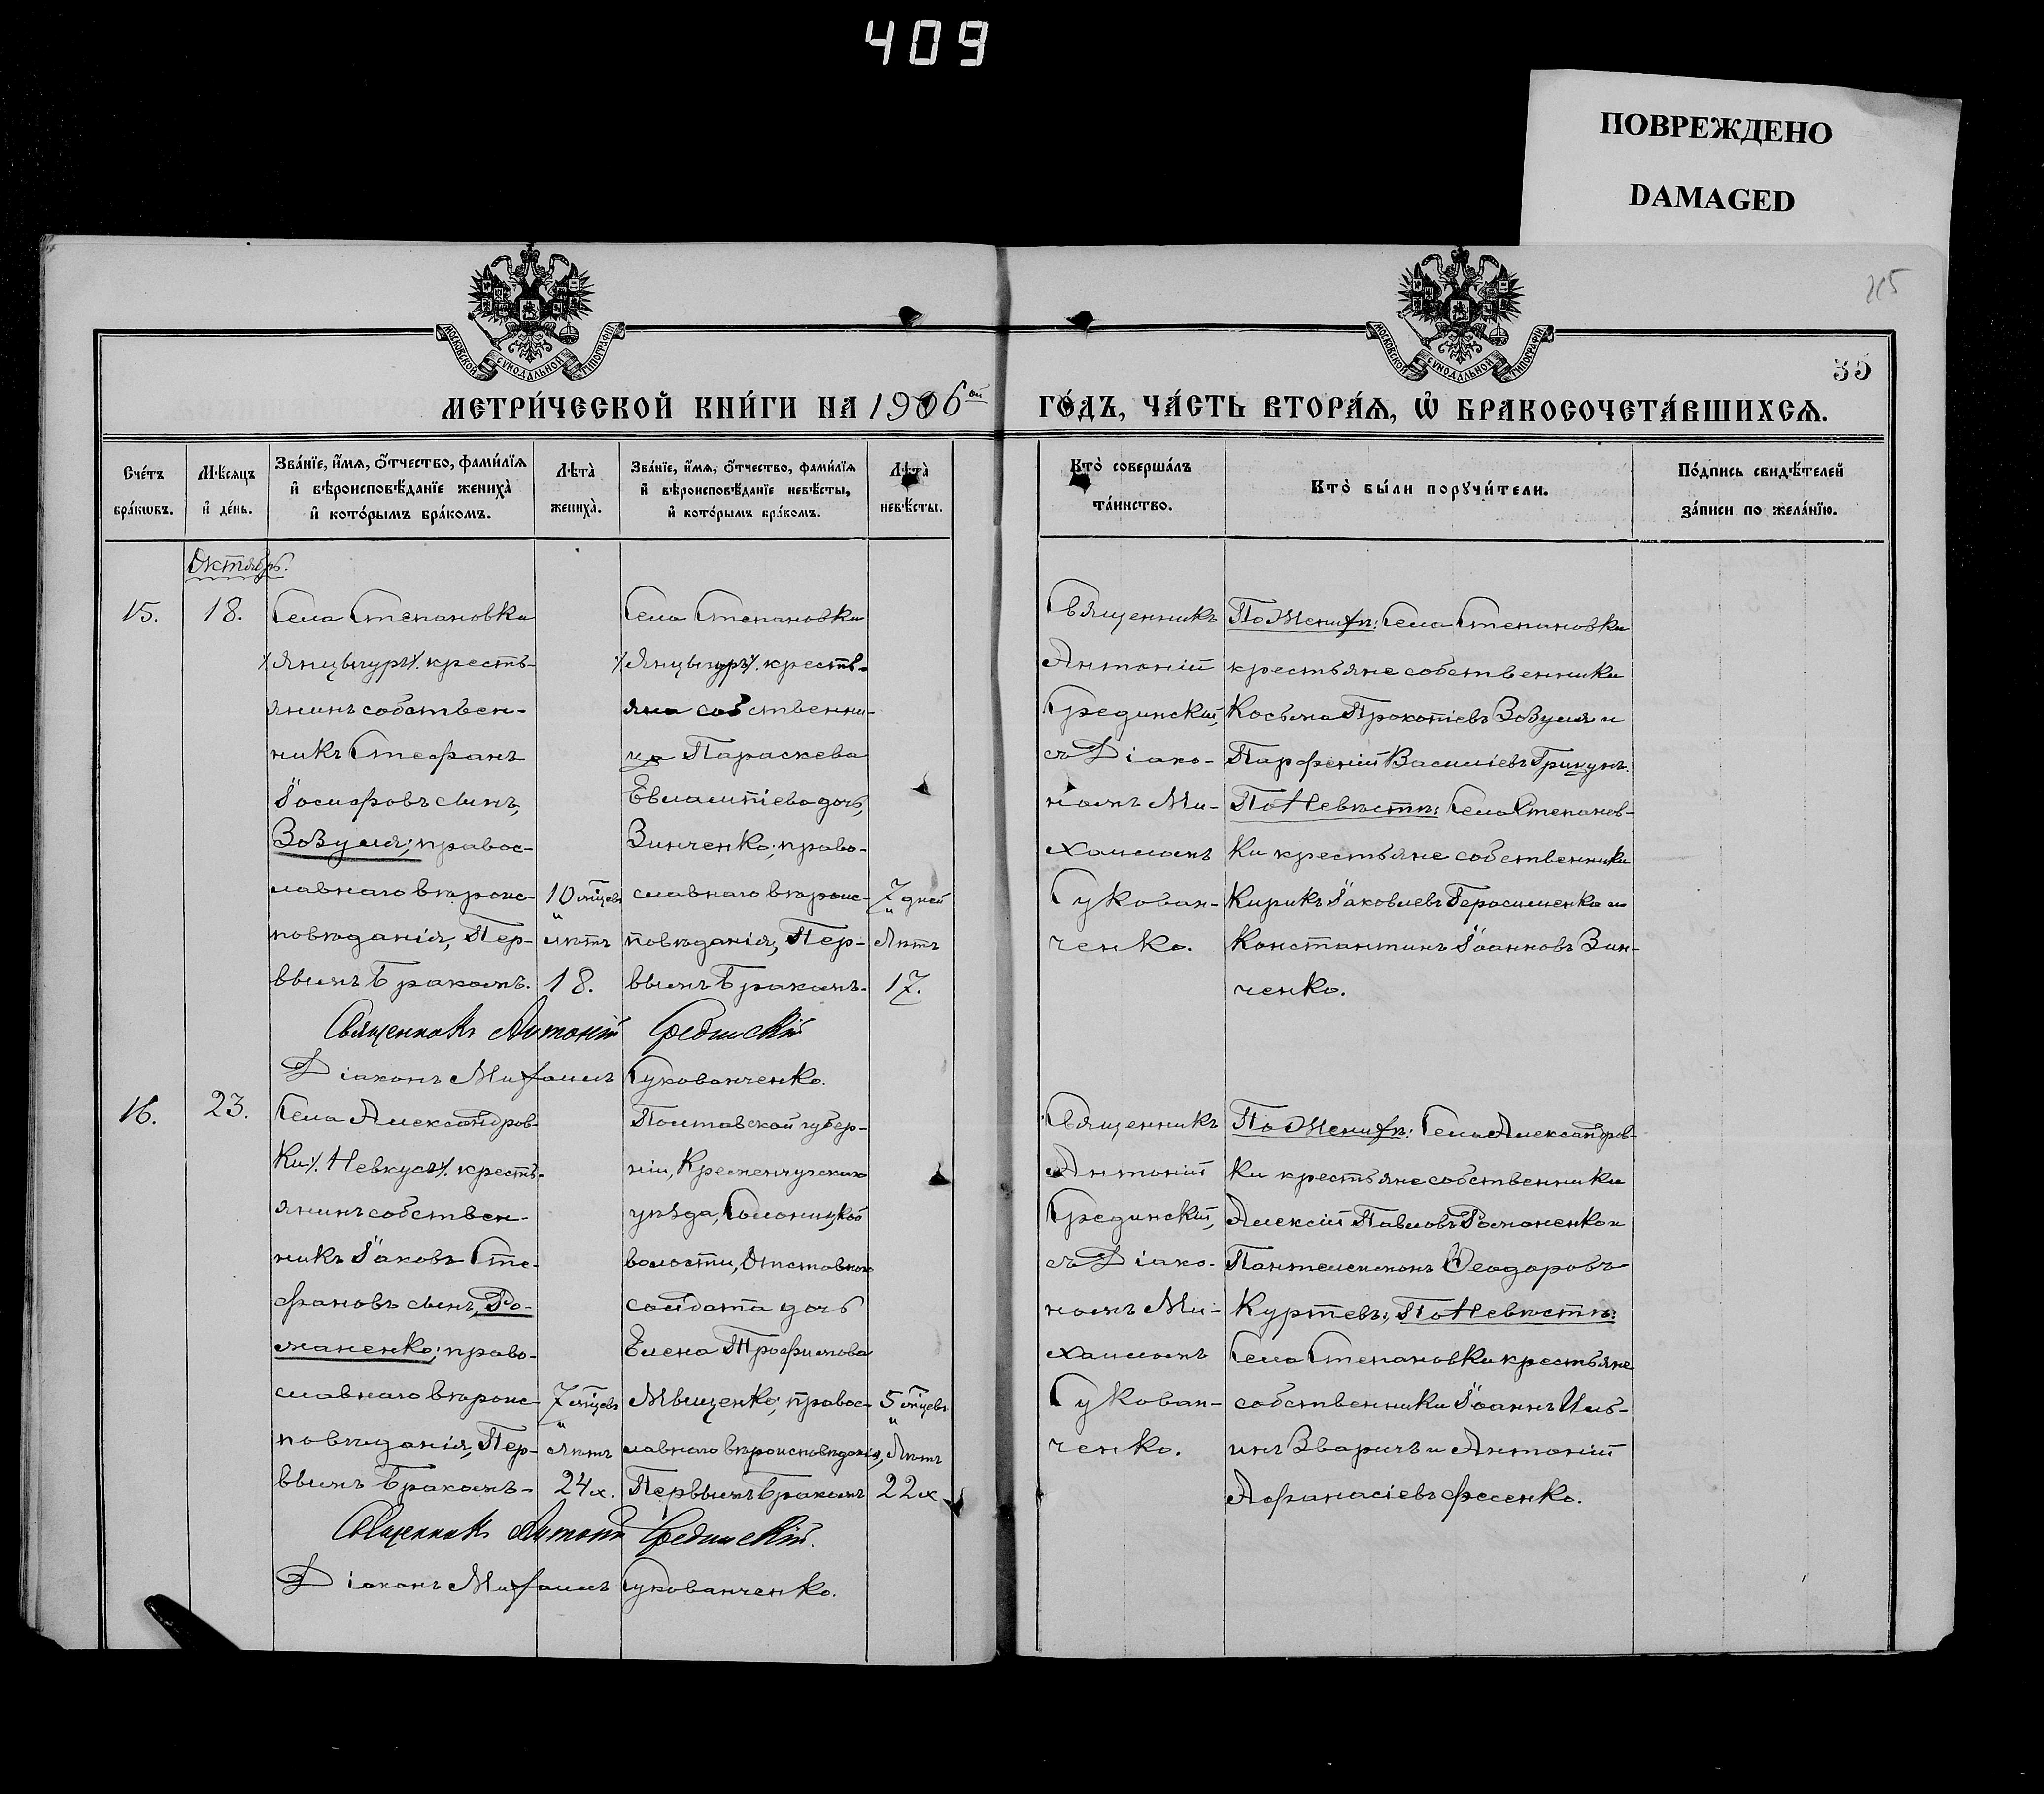 409
ПОВРЕЖДЕНО
DAMAGED
МОСКОВСКОЙ СѴНОДАЛЬНОЙ ТИПОГРАФІИ
МОСКОВСКОЙ СѴНОДАЛЬНОЙ ТИПОГРАФІИ
35
МЕТРИ́ЧЕСКОЙ КНИ́ГИ НА 1906ой ГО́ДЪ, ЧА́СТЬ ВТОРА́Я, Ѡ БРАКОСОЧЕТА́ВШИХСЯ.
Сче́тъ бра́кѡвъ.
Мѣ́сяцъ и де́нь.
Зва́нїе, и́мя, ѻ́тчество, фами́лїя
и вѣроисповѣ́данїе жениха̀
и кото́рымъ бра́комъ.
Лѣта̀ жениха̀.
Зва́нїе, и́мя, ѻ́тчество, фами́лїя
и вѣроисповѣ́данїе невѣ́сты,
и кото́рымъ бра́комъ.
Лѣта̀ невѣ́сты.
Кто̀ соверша́лъ
та́инство.
Кто̀ бы́ли порꙋчи́тели.
По́дпись свидѣ́телей
за́писи по жела́нїю.
Октябрь.
15.
18.
Села Степановки
/Янцыгуръ/. кресть-
янинъ собствен-
никъ Стефанъ
Іосифовъ сынъ,
Зозуля; правос-
лавнаго вѣроис-
повѣданія, Пер-
вымъ бракомъ.
10 мѣцевъ
и
лѣтъ
18.
Села Степановки
/Янцыгуръ/. кресть-
яна собственни-
ка Параскева
Евлампіева дочь,
Зинченко; право-
славнаго вѣроис-
повѣданія, Пер-
вымъ бракомъ.
7 дней
и
Лѣтъ
17.
Священникъ
Антоній
Срединскій,
съ Діако-
номъ Ми-
хаиломъ
Сукован-
ченко.
По Женихѣ: Села Степановки
крестьяне собственники
Косьма Прокопіевъ Зозуля и
Парфеній Василіевъ Грицунъ.
По Невѣстѣ: Села Степанов-
ки крестьяне собственники
Кирикъ Іаковлевъ Герасименко и
Константинъ Іоанновъ Зин-
ченко.
Священникъ Антоній Срединскій
Діаконъ Михаилъ Сукованченко.
16.
23.
Села Александров-
ки/. Невкусъ/. кресть-
янинъ собствен-
никъ Іаковъ Сте-
фановъ сынъ, Ро-
маненко; право-
славнаго вѣроис-
повѣданія, Пер-
вымъ бракомъ.
7 мѣцевъ
и
Лѣтъ
24х.
Полтавской губер-
ніи, Кременчугскаго
уѣзда,
волости, Отставнаго
солдата дочь
Елена Трофимова
Мищенко; правос-
лавнаго вѣроисповѣданія,
Первымъ бракомъ
5 мѣцевъ
и
Лѣтъ
22х
Священникъ
Антоній
Срединскій,
съ Діако-
номъ Ми-
хаиломъ
Сукован-
ченко.
По Женихѣ: Села Александров-
ки крестьяне собственники
Алексій Павловъ Романенко и
Пантелеимонъ Ѳеодоровъ
Куртевъ; По Невѣстѣ:
Села Степановки крестьяне
собственники Іоаннъ Иль-
инъ Зваричъ и Антоній
Афанасіевъ Фесенко.
Священникъ Антоній Срединскій.
Діаконъ Михаилъ Сукованченко.